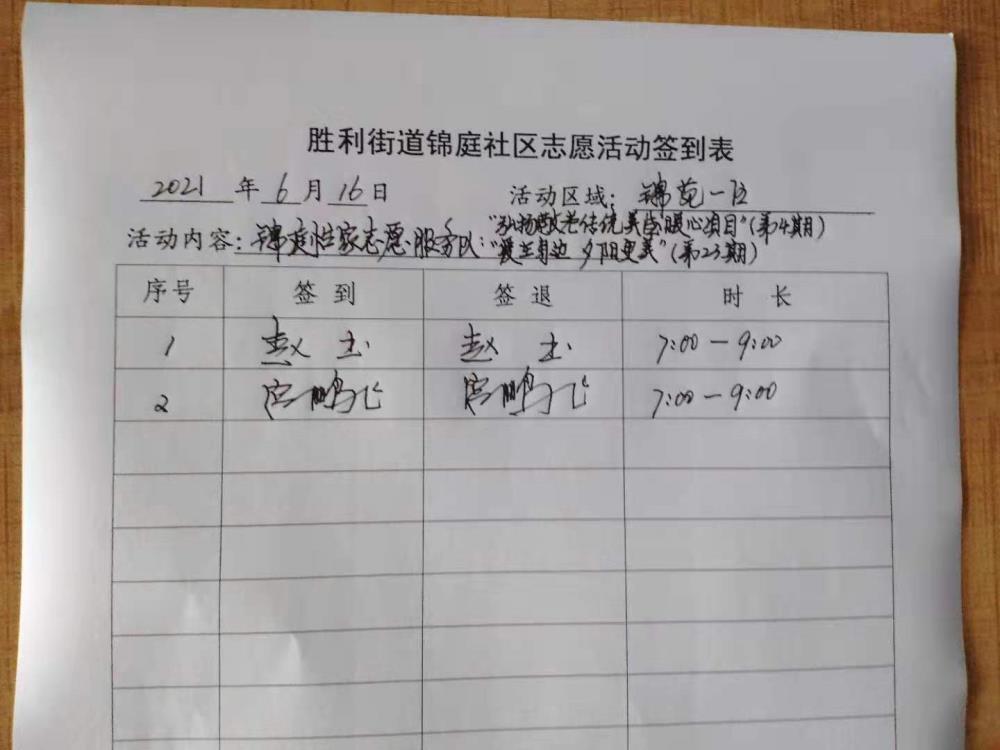 胜利街道锦庭社区志愿活动签到表
2021 年 6 月 16 日 活动区域: 锦苑一区
"弘扬敬老传统美德暖心项目"(第4期)
活动内容: 锦庭惟家志愿服务队: "爱在身边 夕阳更美"(第23期)
序号 签到 签退 时长
1 赵 玉 赵 玉 7:00-9:00
2 宫鹏飞 宫鹏飞 7:00-9:00